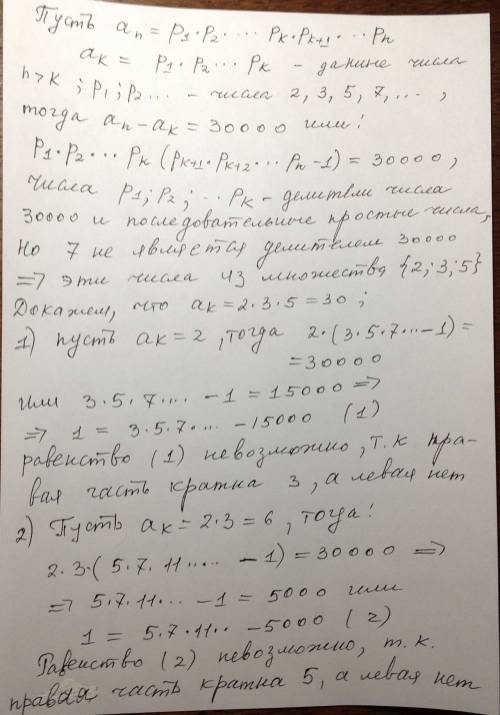 Пусть aₙ = p₁·p₂····pₖ·pₖ₊₁···pₙ
aₖ = p₁·p₂···pₖ - данные числа
n>k; p₁; p₂... - числа 2, 3, 5, 7, ...,
тогда aₙ-aₖ = 30000 или:
p₁·p₂···pₖ(pₖ₊₁·pₖ₊₂···pₙ-1) = 30000,
числа p₁; p₂; ·· pₖ - делители числа
30000 и последовательные простые числа,
Но 7 не является делителем 30000
=> эти числа из множества {2; 3; 5}
Докажем, что aₖ = 2·3·5 = 30;
1) пусть aₖ = 2, тогда 2·(3·5·7···-1) =
= 30000
Или 3·5·7···· -1 = 15000 =>
=> 1 = 3·5·7··· -15000 (1)
равенство (1) невозможно, т.к пра-
вая часть кратна 3, а левая нет
2) Пусть aₖ = 2·3 = 6, тогда:
2·3·(5·7·11····· -1) = 30000 =>
=> 5·7·11··· -1 = 5000 или
1 = 5·7·11·· -5000 (2)
Равенство (2) невозможно, т.к.
правая часть кратна 5, а левая нет